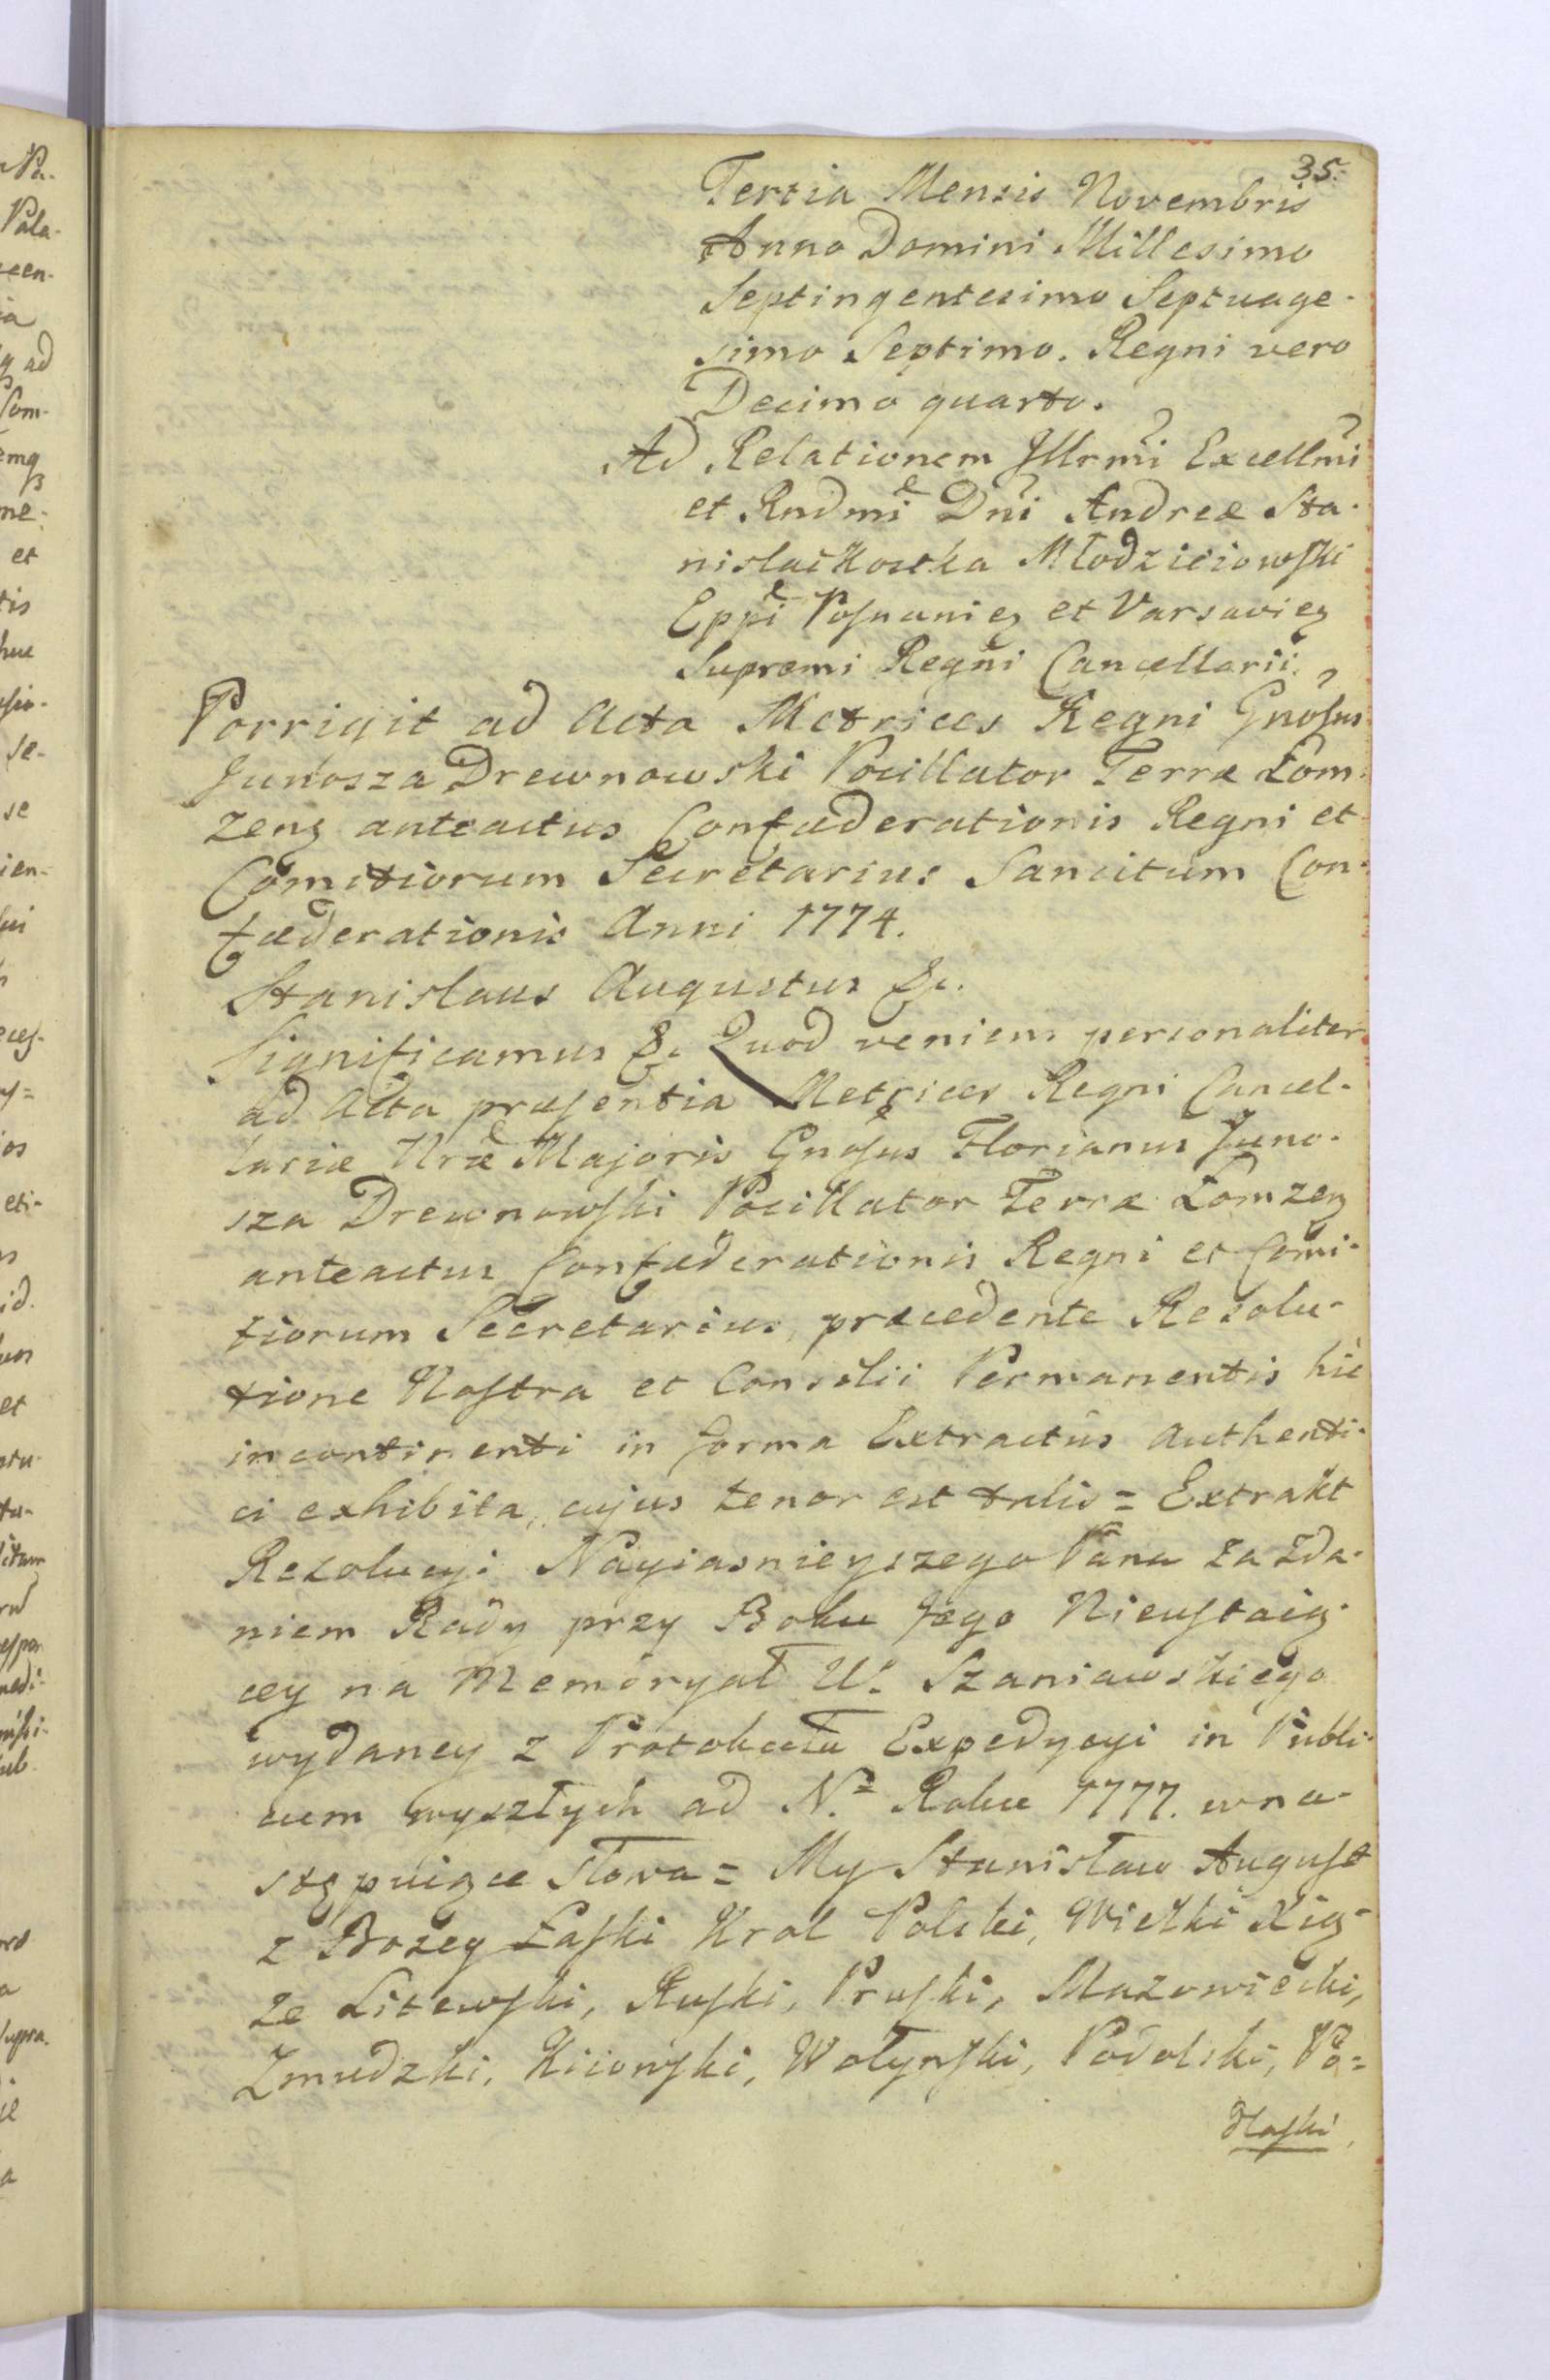 35.
Tertia Mensis Novembris
Anno Domini Millesimo
Septingentesimo Septuage-
simo Septimo. Regni vero
Decimo quarto.
Ad Relationem Jllrmi Excellmi
et Rndmi Dni Andreæ Sta-
nislai Kostka Młodzieiowski
Eppi Posnanieȝ et Varsavieȝ
Supremi Regni Cancellarii.
Porrigit ad Acta Metrices Regni Gnosus
Junosza Drewnowski Pocillator Terræ Łom-
zenȝ anteactus Confæderationis Regni et
Comitiorum Secretarius Sancitum Con-
fæderationis Anni 1774.
Stanislaus Augustus &c.
Significamus &c. Quod veniens personaliter
ad Acta præsentia Metrices Regni Cancel-
lariæ Nræ Majoris Gnosus Florianus Juno-
sza Drewnowski Pocillator Terræ Łomzenȝ
anteactus Confæderationis Regni et Comi-
tiorum Secretarius, præcedente Resolu-
tione Nostra et Consilii Permanentis hic
incontinenti in forma Extractus Authenti-
ci exhibita, cujus tenor est talis = Extrakt
Rezolucyi Nayiasnieyszego Pana za Zda-
niem Rady przy Boku Jego Nieustaią-
cey na Memoryał W. Szaniawskiego
wydaney z Protokułu Expedycyi in Publi-
cum wyszłych ad N.= Roku 1777. w na-
stępuiące słowa = My Stanisław August
z Bożey Łaski Krol Polski, Wielki Xią-
że Litewski, Ruski, Pruski, Mazowiecki,
Zmudzki, Kiiowski, Wołynski, Podolski, Po=
dlaski,